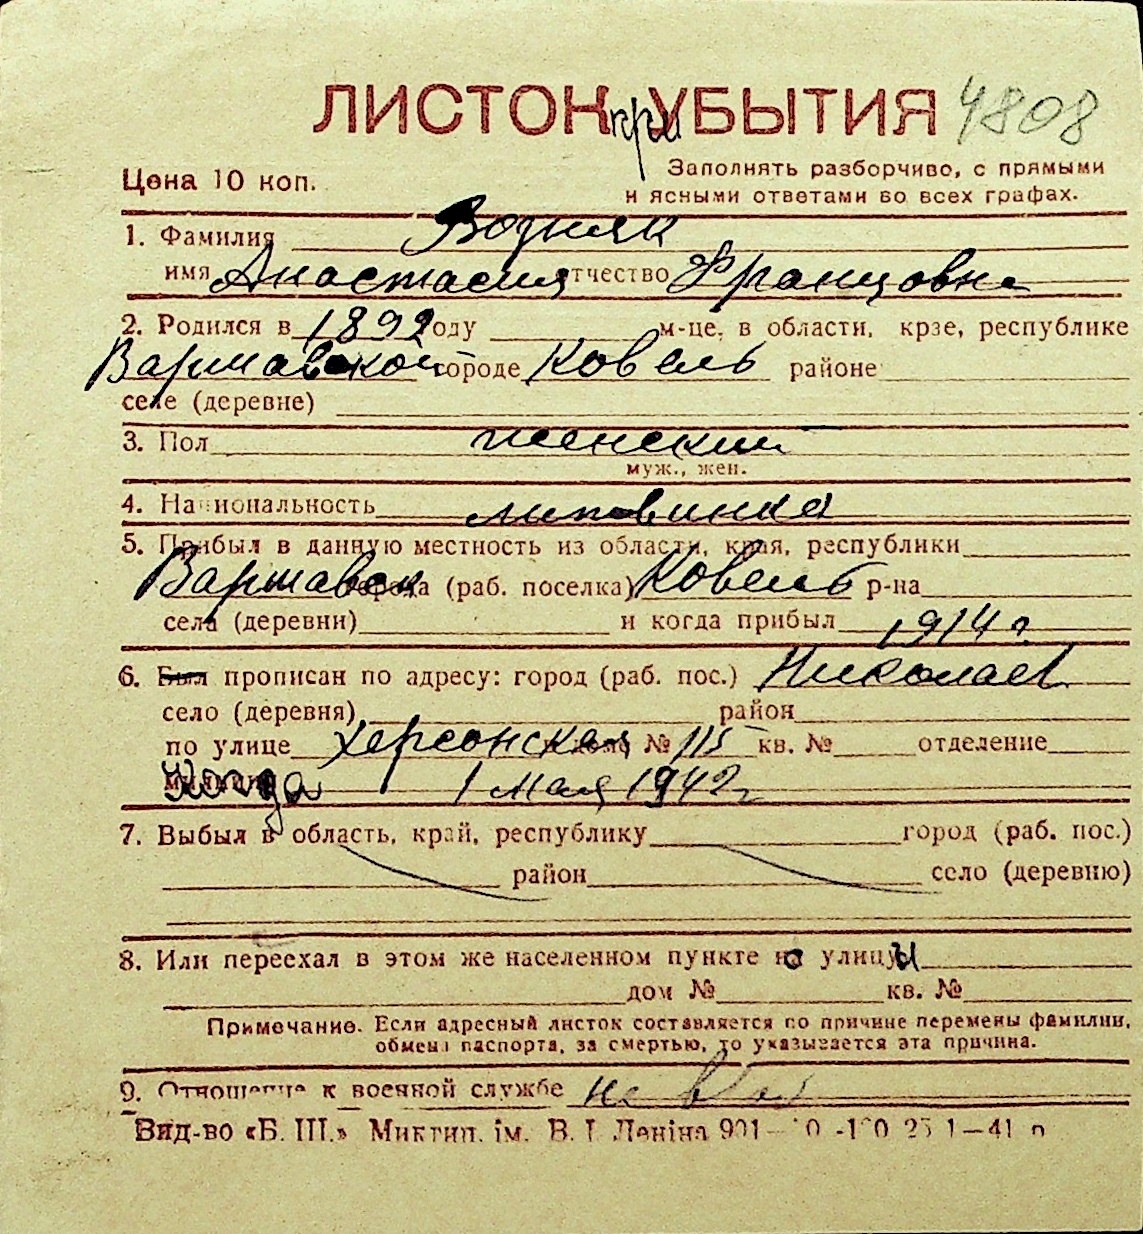 ЛИСТОК УБЫТИЯ при 4808
Цена 10 коп. Заполнять разборчиво, с прямыми
и ясными ответами во всех графах.
1. Фамилия Возняк
имя Анастасия отчество Францовна
2. Родился в 1892 году м-це, в области, крае, республике
Варшавской городе Ковель районе
селе (деревне)
3. Пол женский
муж., жен.
4. Национальность литвинка
5. Прибыл в данную местность из области, края, республики
Варшавск города (раб. поселка) Ковель р-на
села (деревни) и когда прибыл 1914 г
6. Был прописан по адресу: город (раб. пос.) Николаев
село (деревня) район
по улице Херсонская дом № 115 кв. № отделение
Когда 1 мая 1942 г
7. Выбыл в область, край, республику город (раб. пос.)
район село (деревню)
8. Или переехал в этом же населенном пункте с улицы
дом № кв. №
Примечание. Если адресный листок составляется по причине перемены фамилии,
обмена паспорта, за смертью, то указывается эта причина.
9. Отношение к военной службе
Вид-во «Б. Ш.» Миктип. ім. В. І. Леніна